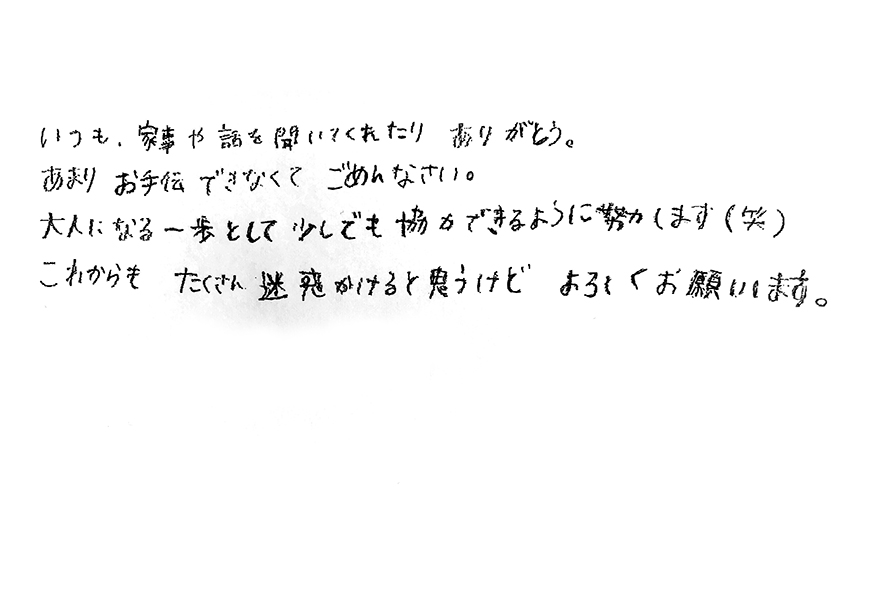 いつも、家事や話を聞いてくれたり ありがとう。
あまり お手伝できなくて ごめんなさい。
大人になる一歩として少しでも協力できるように努力します(笑)
これからも たくさん迷惑かけると思うけど よろしくお願いします。